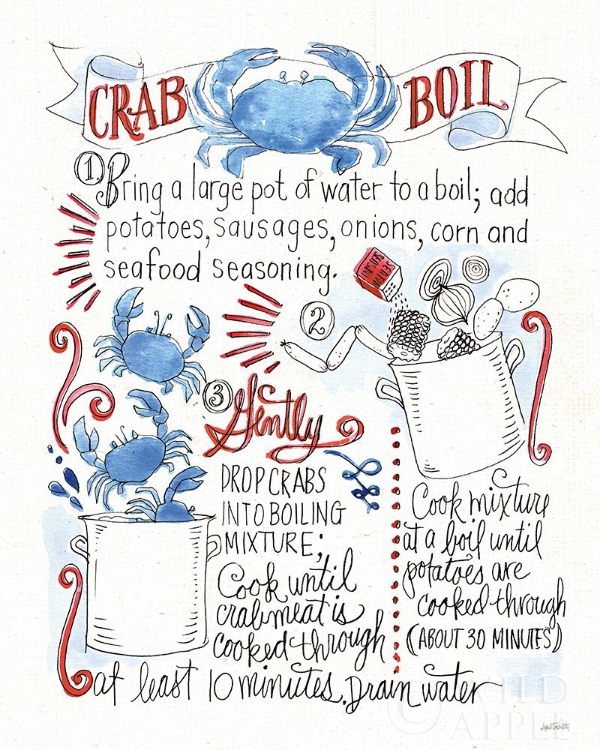 CRAB BOIL
1 Bring a large pot of water to a boil; add
potatoes, sausages, onions, corn and
seafood seasoning.
2
Cook mixture
at a boil until
potatoes are
cooked through
(ABOUT 30 MINUTES)
3 Gently
DROP CRABS
INTO BOILING
MIXTURE;
Cook until
crabmeat is
cooked through
at least 10 minutes. Drain water
WILD
APPLE